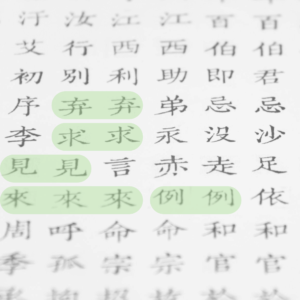 汙 汝 江 江 百 百
艾 行 西 西 伯 伯
初 別 利 助 即 君
序 弃 弃 弟 忌 忌
李 求 求 汞 沒 沙
見 見 言 赤 走 足
來 來 來 例 例 依
周 呼 命 命 和 和
季 孤 宗 宗 官 官